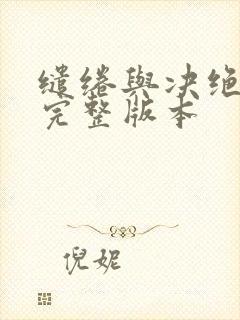 缱绻與决绝
完整版本
倪妮